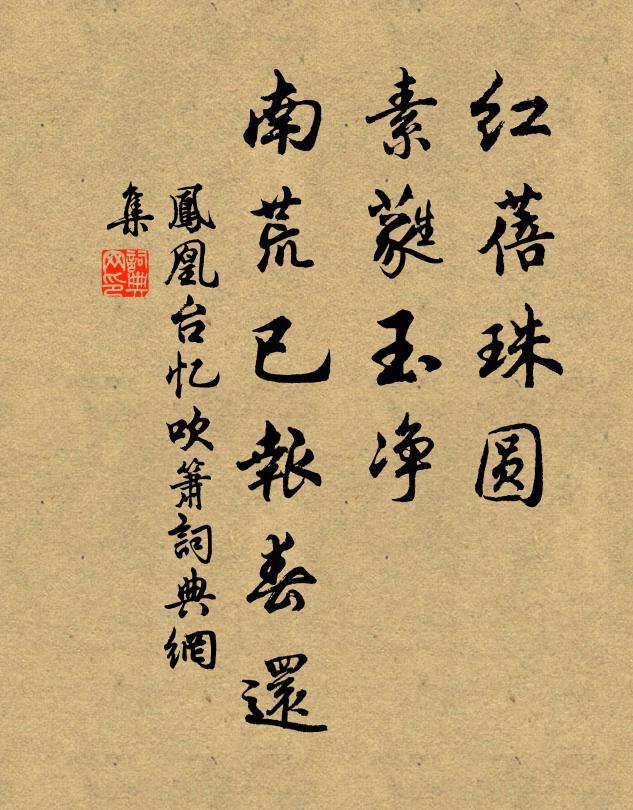 红蓓珠圆
素蕤玉净
南荒已報春還
鳳凰台忆吹簫詞典網
集
詞典
网印